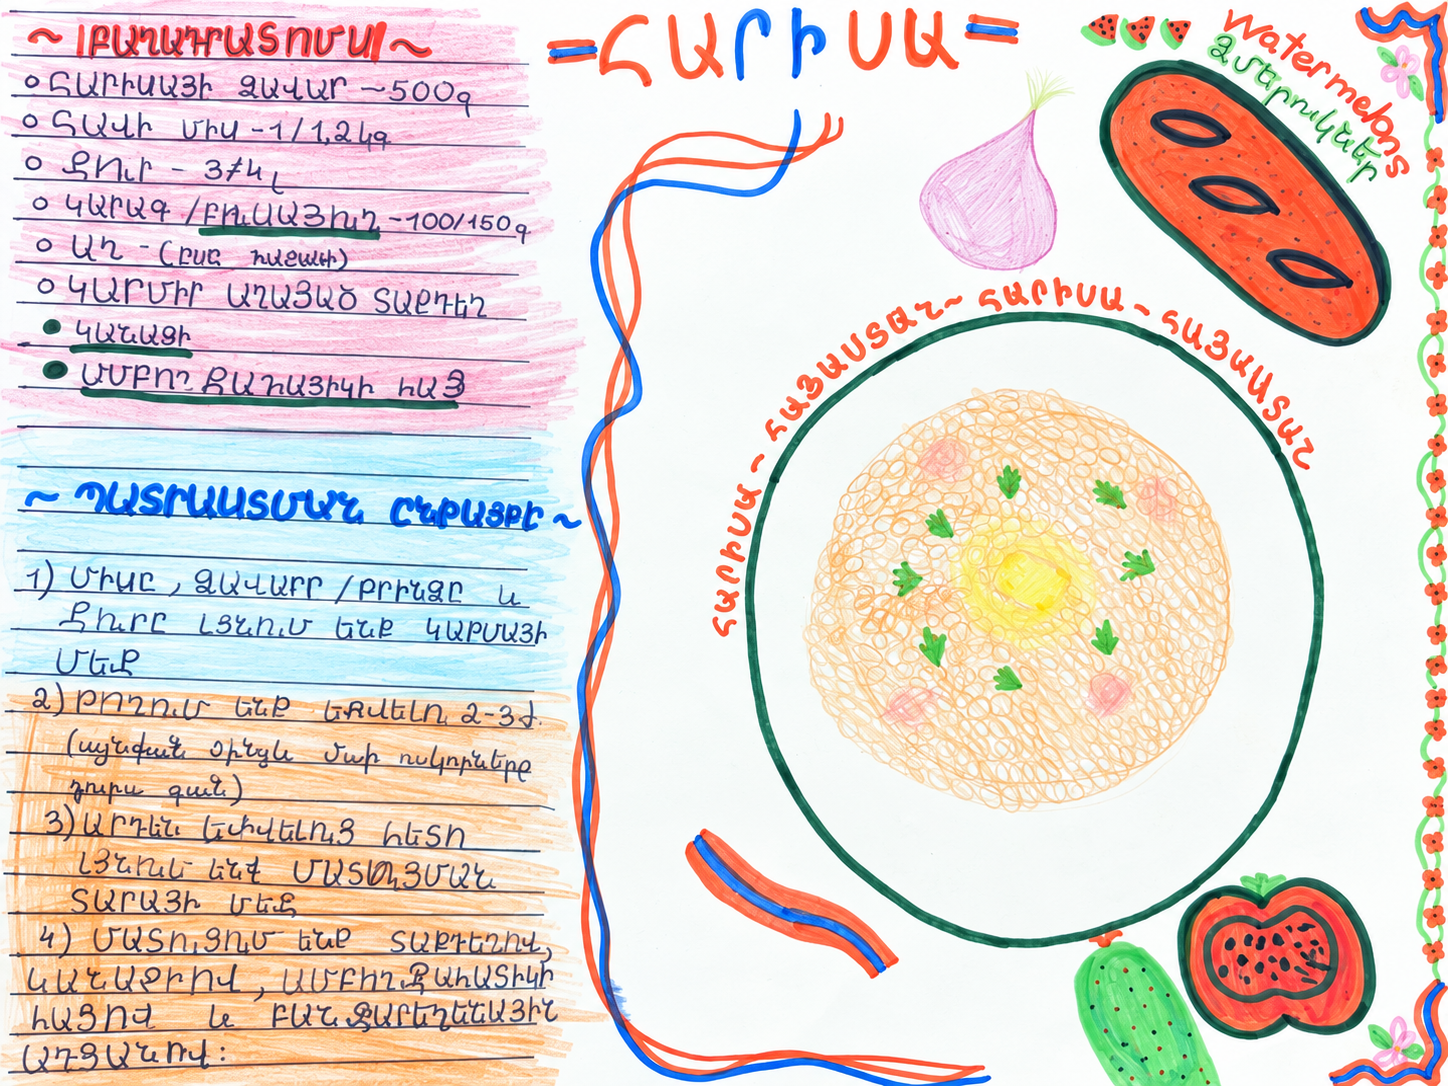 ~ ԲԱՂԱԴՐԱՏՈՄՍ ~
ՀԱՐԻՍԱՅԻ ՁԱՎԱՐ ~500գ
ՀԱՎԻ ՄԻՍ -1/1,2 կգ
ՋՈւՐ - 3/4 լ
ԿԱՐԱԳ /ԲՈւՍԱՅՈւՂ -100/150գ
ԱՂ - (ԸՍՏ ՃԱՇԱԿԻ)
ԿԱՐՄԻՐ ԱՂԱՑԱԾ ՏԱՔԴԵՂ
ԿԱՆԱՉԻ
ԱՄԲՈՂՋԱՀԱՏԻԿԻ ՀԱՑ
~ ՊԱՏՐԱՍՏՄԱՆ ԸՆԹԱՑՔԸ ~
1) ՄԻՍԸ , ՁԱՎԱՐԸ /ԲՐԻՆՁԸ և
ՋՈւՐԸ ԼՑՆՈւՄ ԵՆՔ ԿԱԹՍԱՅԻ
ՄԵՋ
2) ԹՈՂՆՈւՄ ԵՆՔ ԵՓՎԵԼՈւ 2-3 ժ.
(այնքան մինչև մսի ոսկորները
դուրս գան)
3) ԱՐԴԵՆ ԵՓՎԵԼՈւՑ ՀԵՏՈ
ԼՑՆՈւՄ ԵՆՔ ՄԱՏՈւՑՄԱՆ
ՏԱՐԱՅԻ ՄԵՋ
4) ՄԱՏՈւՑՈւՄ ԵՆՔ ՏԱՔԴԵՂՈՎ,
ԿԱՆԱՉԻՈՎ , ԱՄԲՈՂՋԱՀԱՏԻԿԻ
ՀԱՑՈՎ և ԲԱՆՋԱՐԵՂԵՆԱՅԻՆ
ԱՂՑԱՆՈՎ:
=ՀԱՐԻՍԱ=
watermelons
Ձմերուկներ
ՀԱՐԻՍԱ ~ ՀԱՅԱՍՏԱՆ ~ ՀԱՐԻՍԱ ~ ՀԱՅԱՍՏԱՆ